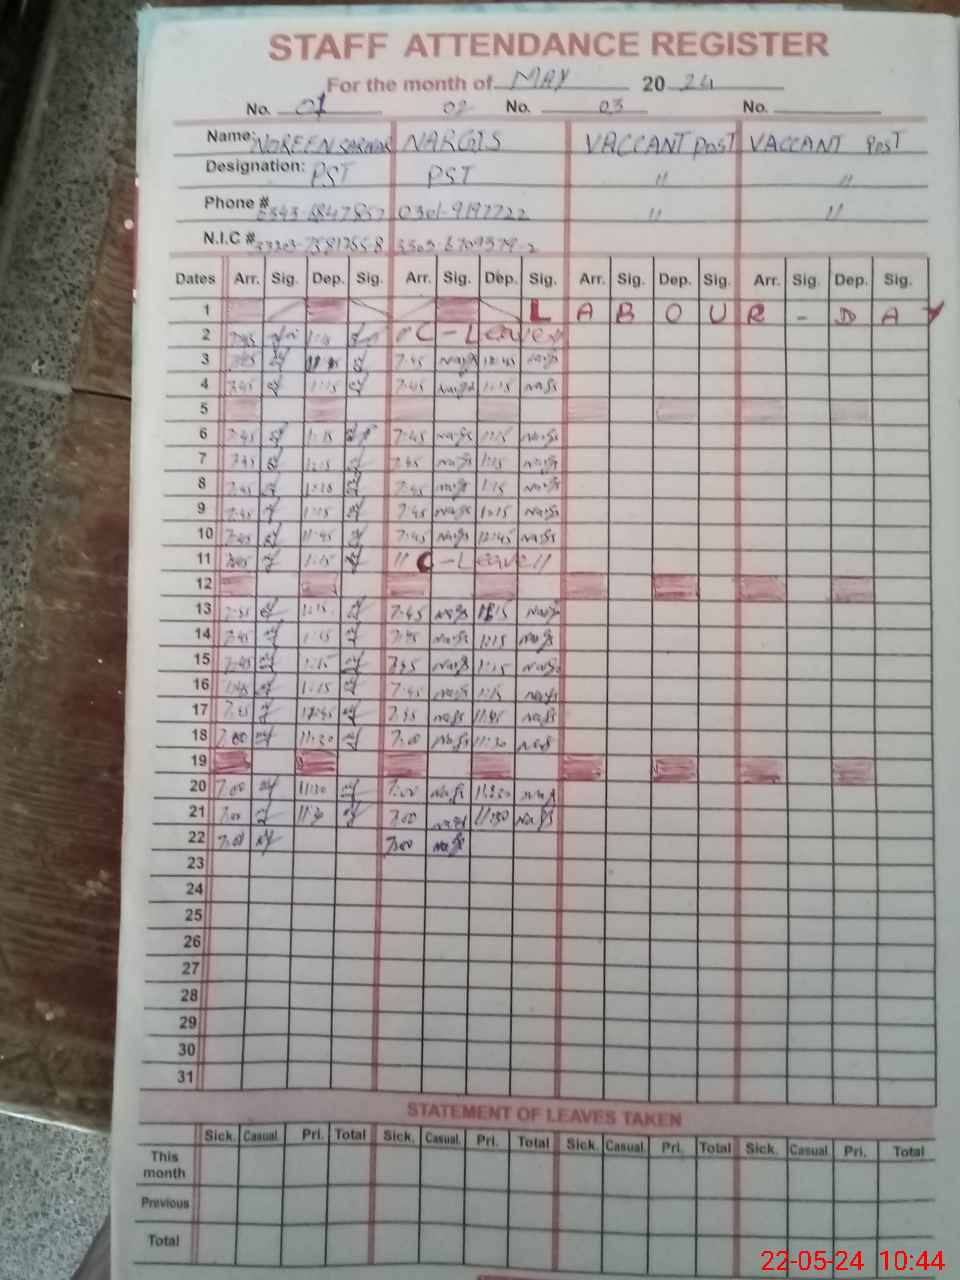 STAFF ATTENDANCE REGISTER
For the month of MAY 20 24
No. 01 02 No. 03 No.
Name: NOREEN SARWAR NARGIS VACCANT POST VACCANT POST
Designation: PST PST " "
Phone # 0343-6847857 0301-9197722 " "
N.I.C #
Dates Arr. Sig. Dep. Sig. Arr. Sig. Dep. Sig. Arr. Sig. Dep. Sig. Arr. Sig. Dep. Sig.
1 L A B O U R - D A Y
2 7:45 1:15 " C - Leave "
3 7:45 7:45 Nargis 12:45 Nargis
4 7:45 1:15 7:45 Nargis 1:15 Nargis
5
6 7:45 1:15 7:45 Nargis 1:15 Nargis
7 7:45 7:45 Nargis 1:15 Nargis
8 7:45 1:15 7:45 Nargis 1:15 Nargis
9 7:45 1:15 7:45 Nargis 1:15 Nargis
10 7:45 11:45 7:45 Nargis 12:45 Nargis
11 7:45 1:15 " C - Leave "
12
13 7:45 1:15 7:45 Nargis 1:15 Nargis
14 7:45 1:15 7:45 Nargis 1:15 Nargis
15 7:45 1:15 7:45 Nargis 1:15 Nargis
16 7:45 1:15 7:45 Nargis 1:15 Nargis
17 7:45 7:45 Nargis 11:45 Nargis
18 7:00 11:30 7:00 Nargis 11:30 Nargis
19
20 7:00 11:30 7:00 Nargis 11:30 Nargis
21 7:00 11:30 7:00 Nargis 11:30 Nargis
22 7:00 7:00 Nargis
23
24
25
26
27
28
29
30
31
STATEMENT OF LEAVES TAKEN
Sick. Casual. Pri. Total Sick. Casual. Pri. Total Sick. Casual. Pri. Total Sick. Casual. Pri. Total
This
month
Previous
Total
22-05-24 10:44